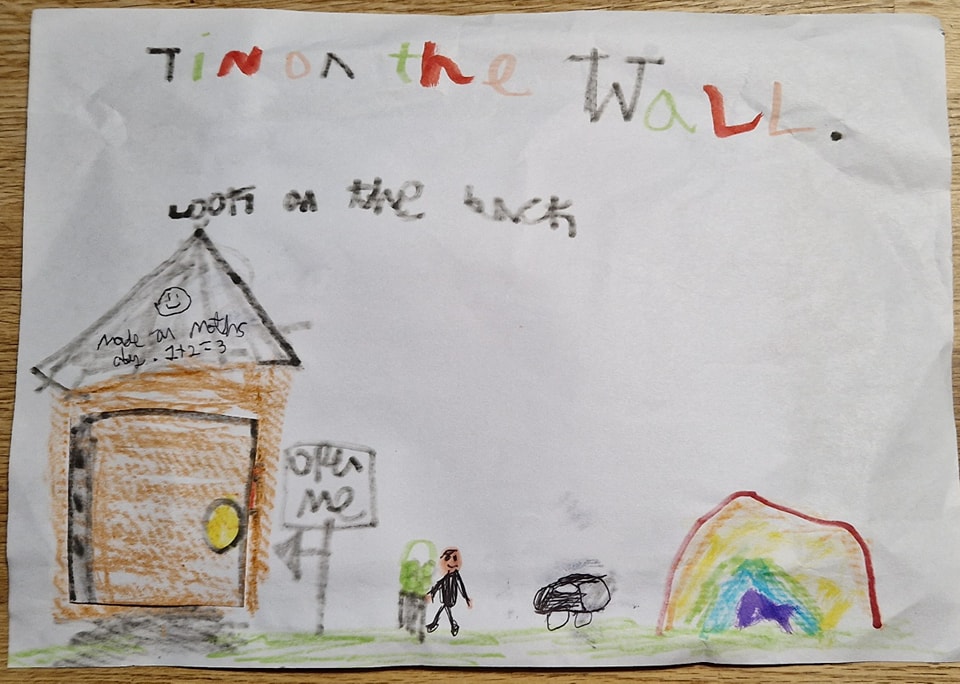 Tin on the Wall.
Look on the back
made on maths
day. 1+2=3
open
me